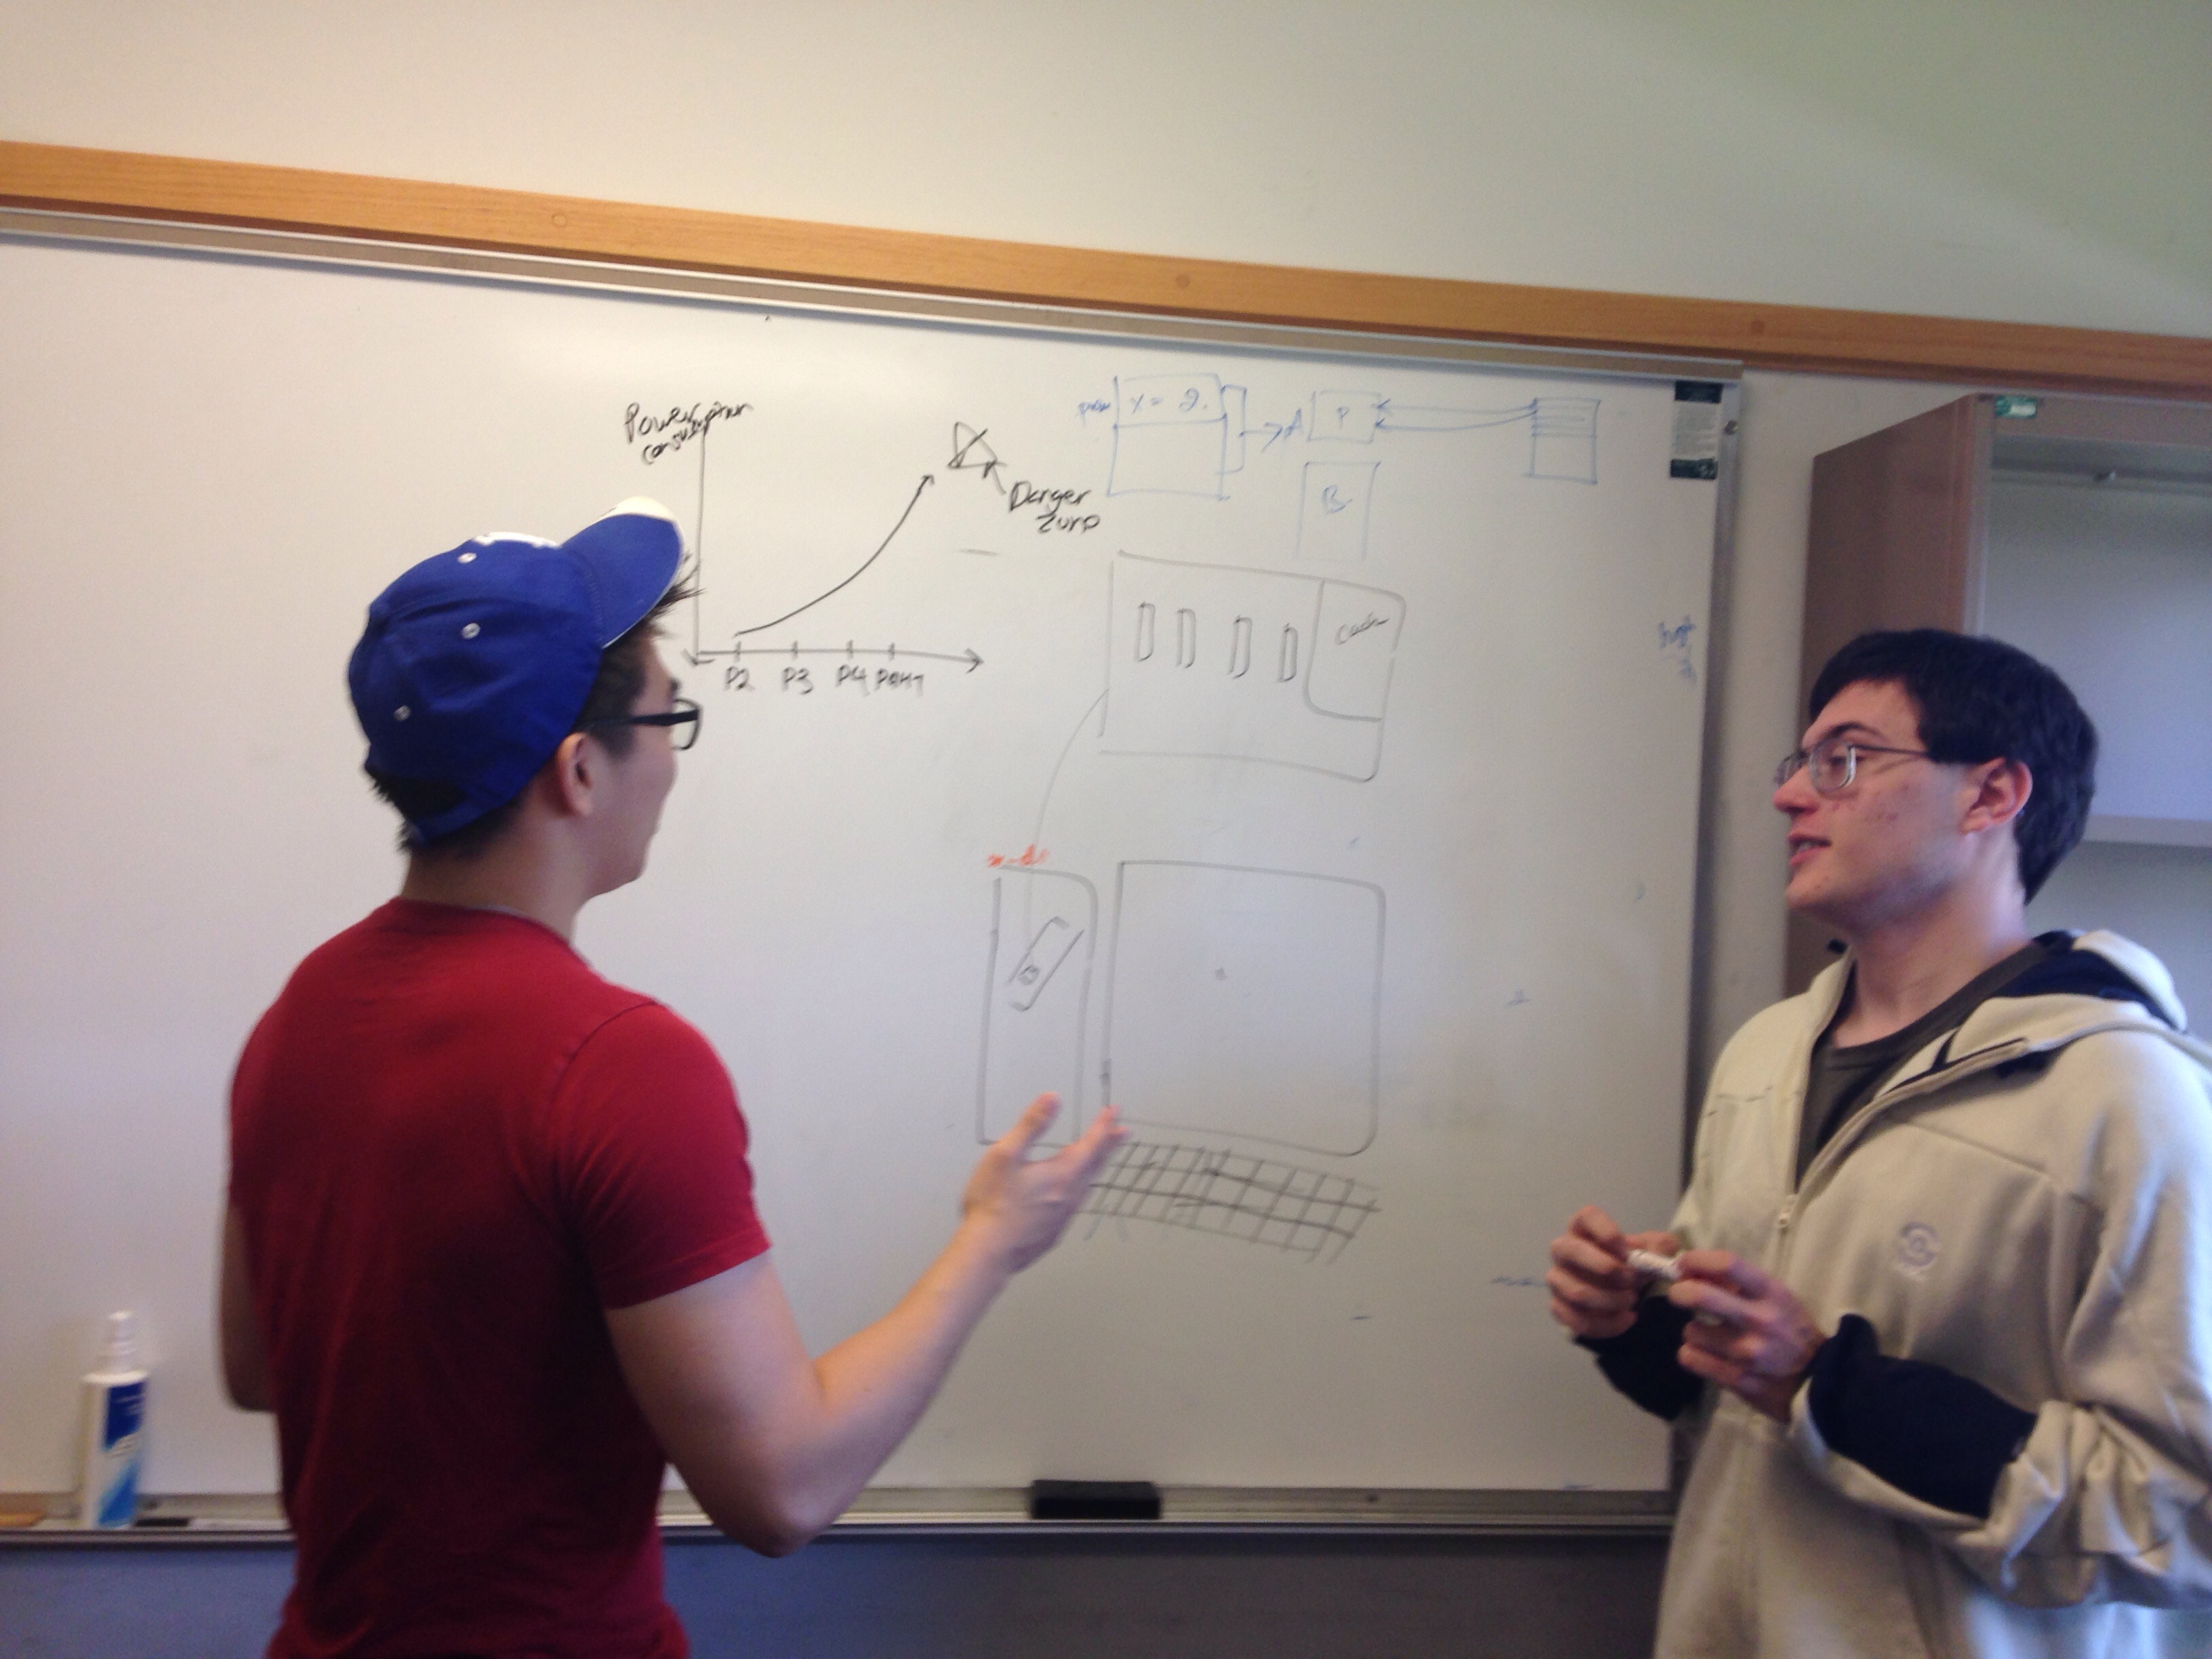 Power
consumption
Danger
zone
P2 P3 P4
x = 2.
A
P
B
Cache